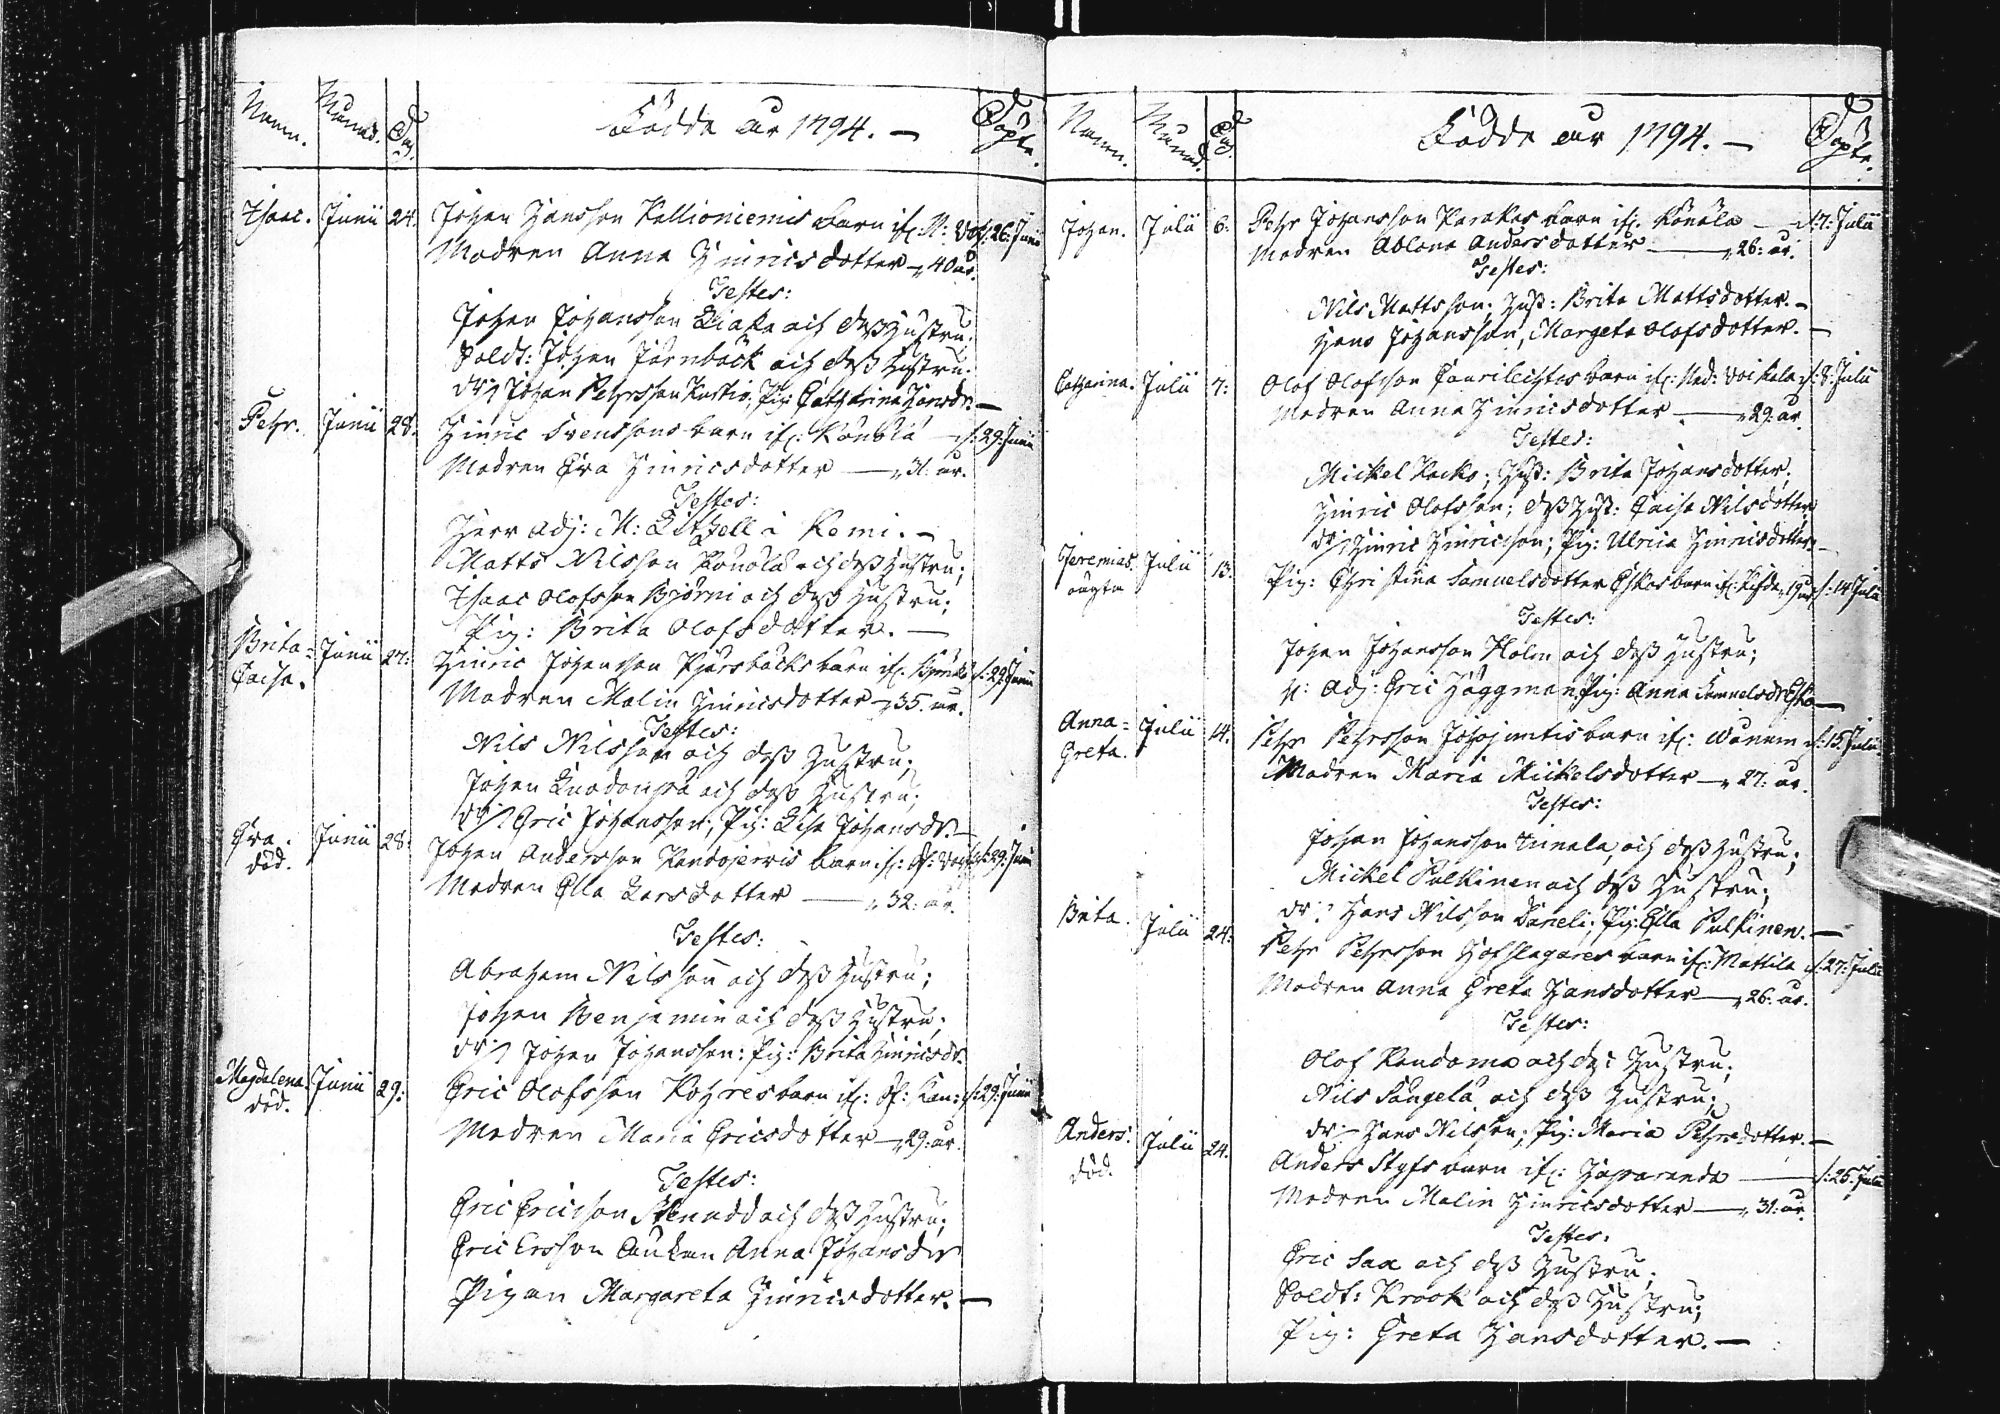 Namn. Månad. Dag. Födde år 1794. — Döpte.
Isaac. Junii 24. Johan Hansson Kallioniemis barn if: N: Voj. 26: Junii
Modren Anna Hinricsdotter — 40 år.
Testes:
Johan Johansson Liaka och dess Hustru.
Soldt: Johan Jernbäck och dess Hustru.
Dr: Johan Pehrsson Pig: Catharina Hansdr. —
Pehr. Junii 28. Hinric Svenssons barn if: Könölä — d: 29: Junii
Modren Eva Hinricsdotter — 31. år.
Testes:
Herr Adj: M: i Kemi. —
Matts Nilsson Könölä och dess Hustru;
Isaac Olofsson Björni och dess Hustru;
Pig: Brita Olofsdotter. —
Brita= Junii 27: Hinric Johansson barn if. d: 29: Junii
Caisa.
Modren Malin Hinricsdotter — 35. år.
Testes:
Nils Nilsson och dess Hustru;
Johan och dess Hustru;
Dr: Eric Johansson; Pig: Lisa Johansdr. —
Eva. Junii 28: Johan Andersson barn if: d: 29: Junii
död.
Modren Ella Larsdotter — 32: år.
Testes:
Abraham Nilsson och dess Hustru;
Johan Benjamin och dess Hustru;
Dr: Johan Johansson: Pig: Brita Hinricsdr.
Magdalena Junii 29: Eric Olofsson barn if: d: 29: Junii
död.
Modren Maria Ericsdotter — 29: år.
Testes:
Eric Ericsson och dess Hustru;
Eric Ersson Anna Johansdtr
Pigan Margareta Hinricsdotter. —
Namn. Månad. Dag. Födde år 1794. — Döpte.
Johan. Julii 6: Pehr Johansson Karakas barn if: Könölä — d: 7: Julii
Modren Ablona Andersdotter — 26: år.
Testes:
Nils Mattsson; Hust: Brita Mattsdotter. —
Hans Johansson, Margeta Olofsdotter. —
Catharina. Julii 7: Olof Olofsson barn if: Ned: Voikala d: 8: Julii
Modren Anna Hinricsdotter — 29. år.
Testes:
Mickel Kacko; Hust: Brita Johansdotter;
Hinric Olofsson; dess Hust: Caisa Nilsdotter
Dr: Hinric Hinricsson; Pig: Ulrica Hinricsdotter. —
Jeremias Julii 13. Pig: Christina Samuelsdotter Eskas barn if: 19 år d: 14 Julii
oägta
Testes:
Johan Johansson Holm och dess Hustru;
H: Adj: Eric Häggman, Pig: Anna Samuelsdr Eska —
Anna= Julii 14. Pehr Pehrsson barn if: d: 15: Julii
Greta.
Modren Maria Mickelsdotter — 27: år.
Testes:
Johan Johansson och dess Hustru;
Mickel Pulkinen och dess Hustru;
Dr: Hans Nilsson Pig: Ella Pulkinen. —
Brita. Julii 24: Pehr Pehrsson Hofslagares barn if: Mattila d: 27: Julii
Modren Anna Greta Hansdotter — 26: år.
Testes:
Olof och dess Hustru;
Nils Sångelä och dess Hustru;
Dr: Hans Nilsson; Pig: Maria Pehrsdotter. —
Anders. Julii 24. Anders Styfs barn if: Haparanda — d: 25: Julii
död.
Modren Malin Hinricsdotter — 31: år.
Testes:
Eric Sax och dess Hustru;
Soldt: Krook och dess Hustru;
Pig: Greta Hansdotter. —